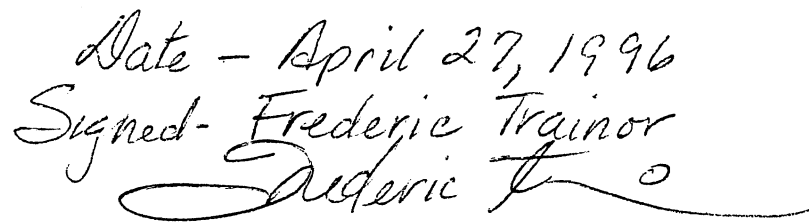 Date - April 27, 1996
Signed- Frederic Trainor
Frederic